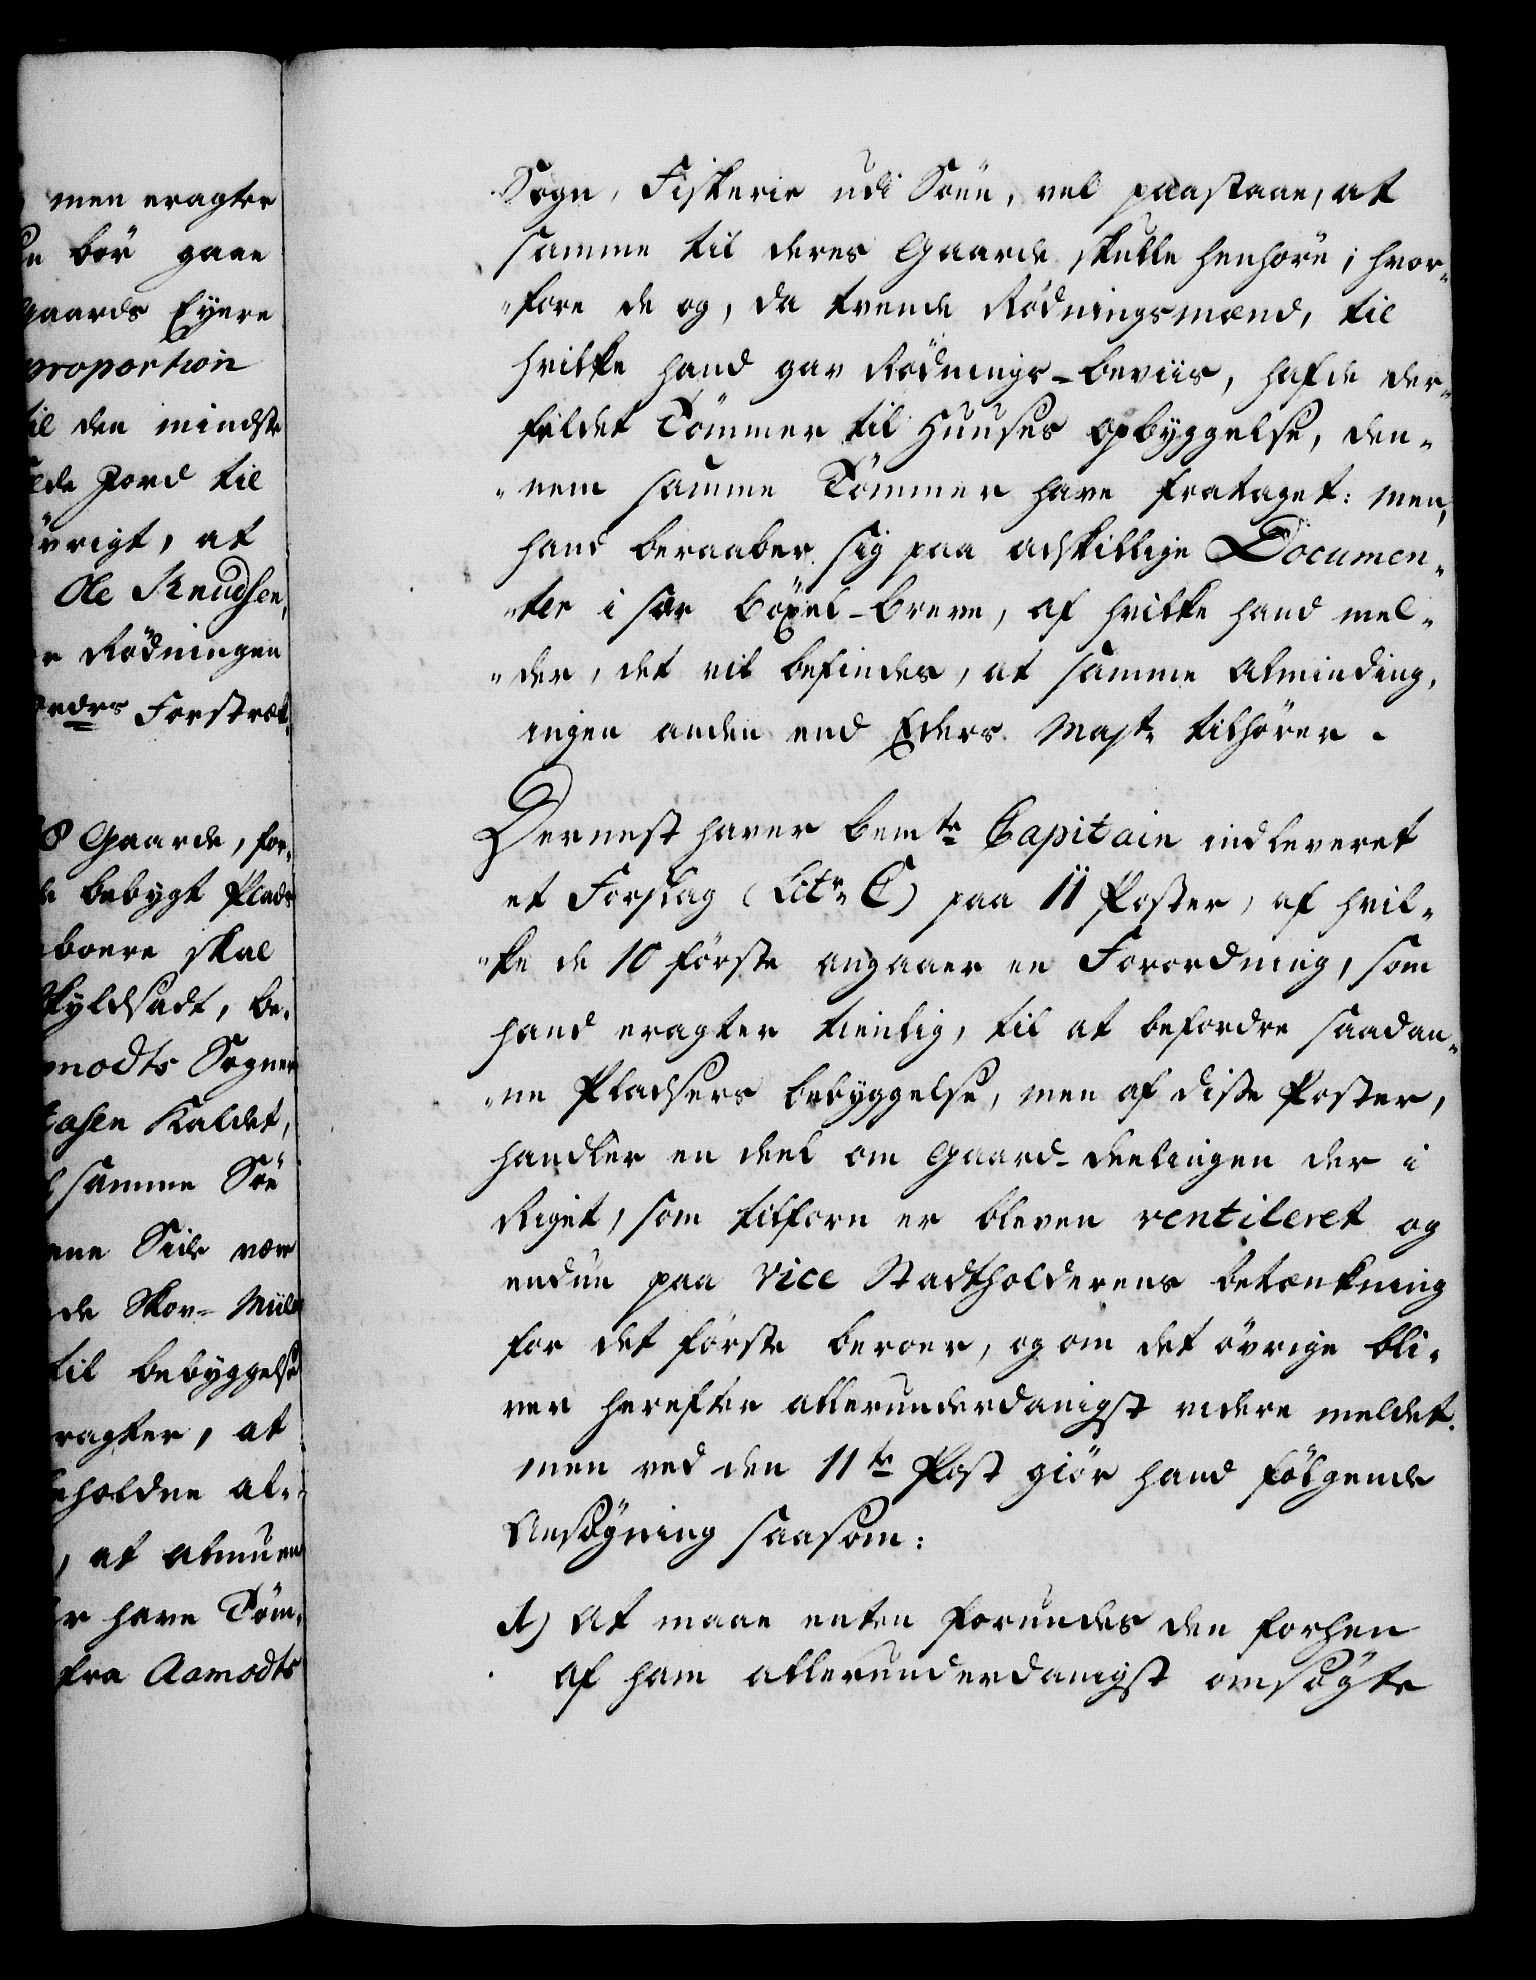 men eragter
bör gaae
gaards Eyere
proportion
til den mindste
Jord til
övrigt, at
Ole Knudsen,
Rödningen
Forstræk,
8 Gaarde, for-
bebygt Plads
boere skal
skyldsadt, be-
modts Sogner
Kaldet,
samme Söe
ene Side være
de Skov- Miile
til bebyggelse
eragter, at
holdne al-
, at almuen
have Töm-
fra Aamodts
Sogn, Fiskerie udi Söen, vel paastaae, at
samme til deres Gaarde skulle henhöre; hvor-
-fore de og, da tvende Rödningsmænd, til
hvilke hand gav Rödnings-beviis, hafde der-
fældet Tömmer til Huuses opbyggelse, den-
-nem samme Tömmer have frataget: men,
hand beraaber sig paa adskillige Documen-
-ter i sær böxel-breve, af hvilke hand mel-
-der, det vil befindes, at samme Alminding,
ingen anden end Eders Majt. tilhörer.
Dernest haver bemte Capitain indleveret
et Forslag (Litr. C) paa 11 Poster, af hvil-
-ke de 10 förste angaaer en Forordning, som
hand eragter tienlig, til at befordre saadan-
-ne Pladsers bebyggelse, men af disse Poster,
handler en deel om Gaard-deelingen der i
Riget, som tilforn er bleven ventileret og
endnu paa Vice Stadtholderens betænkning
for det förste beroer, og om det övrige bli-
ver herefter allerunderdanigst videre meldet.
men ved den 11te Post giör hand fölgende
Ansögning saasom:
1) At maae enten forundes den forhen
af ham allerunderdanigst ansögte